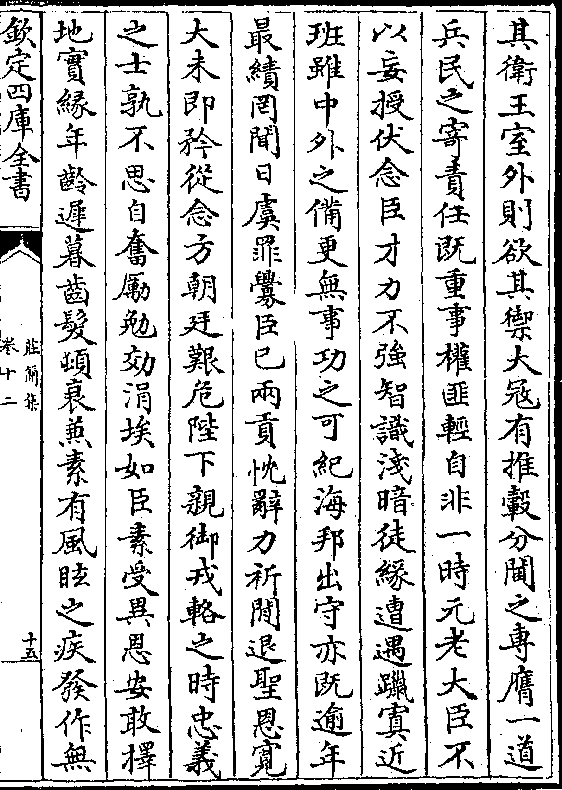 其衛王室外則欲其禦大冦有推轂分閫之専膺一道
兵民之寄責任既重事權匪輕自非一時元老大臣不
以妄授伏念臣才力不強智識淺暗徒緣遭遇躐寘近
班雖中外之備更無事功之可紀海邦出守亦既逾年
最績罔聞日虞罪釁臣已兩貢忱辭力祈閒退聖恩寛
大未即矜從念方朝廷艱危陛下親御戎輅之時忠義
之士孰不思自奮勵勉効涓埃如臣素受異恩安敢擇
地實緣年齡遲暮齒髮頓衰兼素有風眩之疾發作無
欽定四庫全書
莊簡集
卷十二
十五